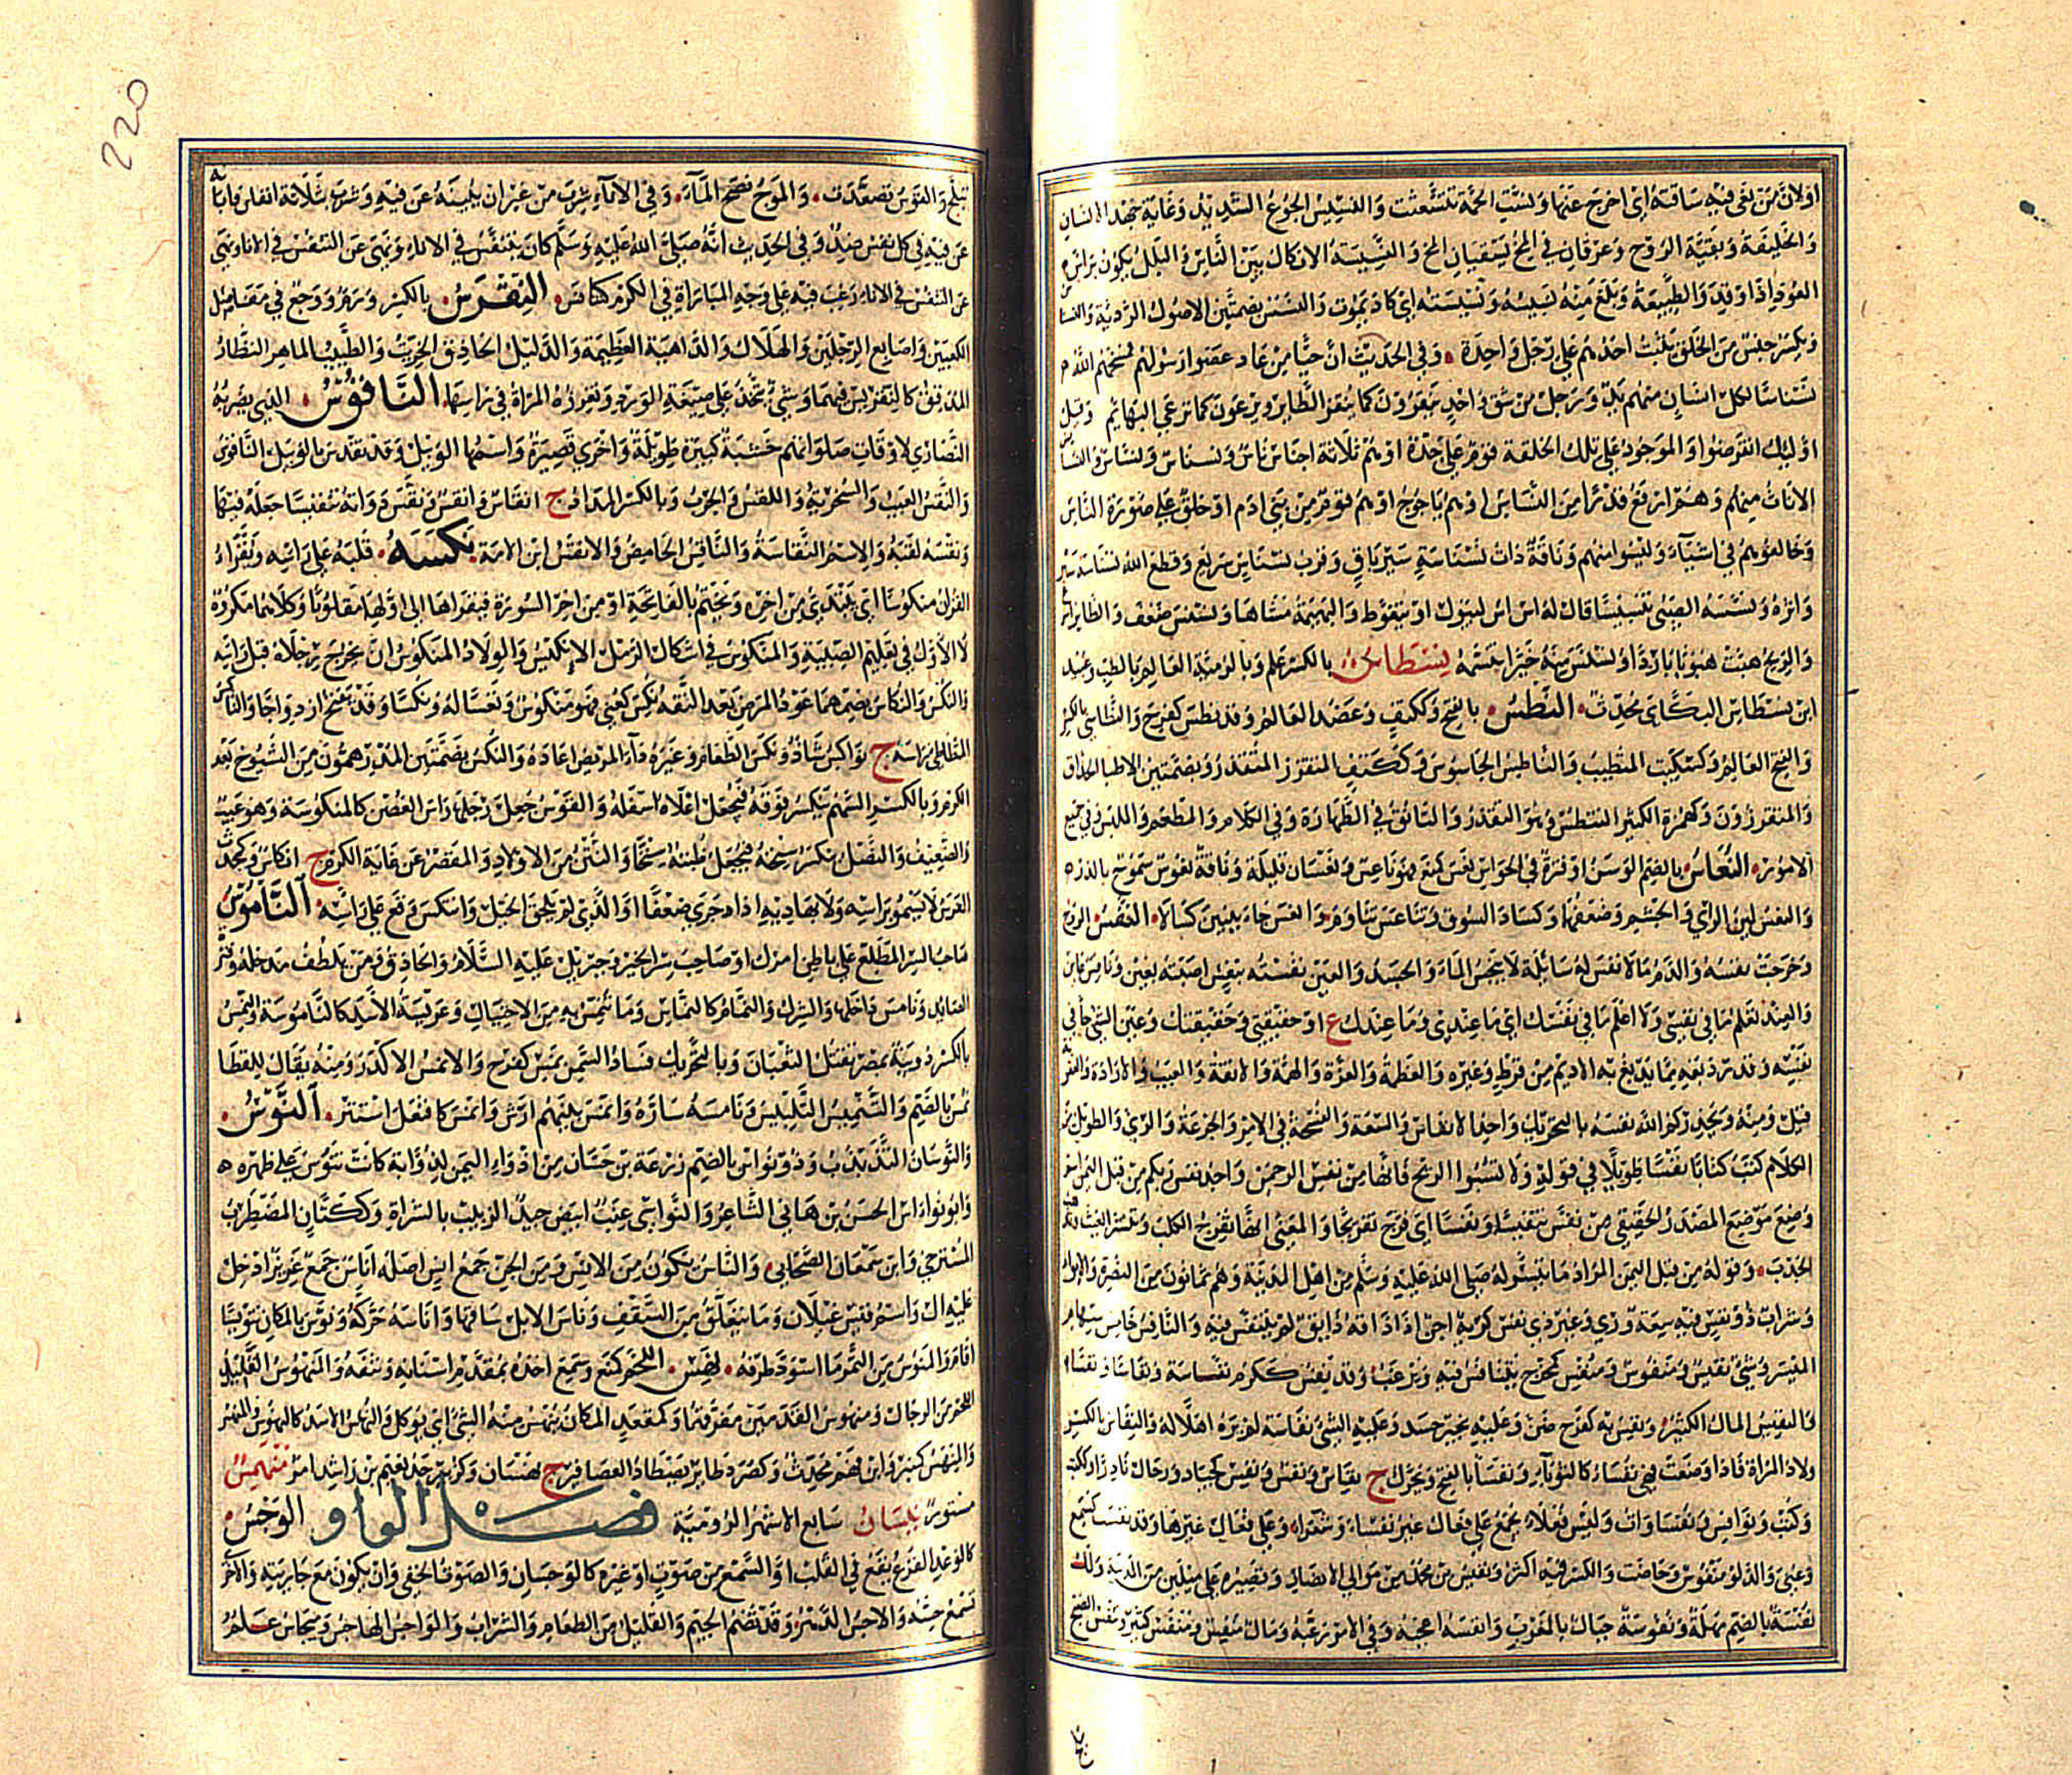 اولان من بغى فيه ساقه اى اخرج عنها ونسّت الجمة تشعثت والنسيس الجوع الشديد وغاية جهد الانسان
والخليقة وبقية الروح وعرقان في المخ يسقيان المخ والنسيسة الايكال بين الناس والبلل يكون براس
العود اذا اوقد والطبيعة وبلغ منه نسيسه ونسيسته اى كاد يموت والنسس بضمتين الاصول الردية والنسناس
ويكسر جنس من الخلق يثب احدهم على رجل واحدة وفي الحديث ان حيا من عاد عصوا رسولهم فمسخهم الله
نسناسا لكل انسان منهم يد ورجل من شق واحد ينقزون كما ينقز الطاير ويرعون كما ترعى البهائم وقيل
اوليك انقرضوا والموجود على تلك الخلقة قوم على حدة او هم ثلاثة اجناس ناس ونسناس ونسانس والنسانس
الاناث منهم وهم ارفع قدرا من النسناس او هم ياجوج او هم قوم من بني ادم او خلق على صورة الناس
وخالفوهم في اشياء وليسوا منهم وناقة ذات نسناسة سير باق وقرب نسناس سريع وقطع الله نسناسه سيره
واثره ونسنسه الصبى تنسيسا قال له اس اس ليبول او يتغوط والبهيمة مشاها ونسنس ضعف والطاير اسرع
والريح هبت هبوبا باردا وتنسس منه خبرا تنسمه نسطاس بالكسر علم وبالرومية العالم بالطب وعبيد
ابن نسطاس البكاى محدث النطس بالفتح وككتف وعضد العالم وقد نطس كفرح والنطاسى بالكسر
والفتح العالم وكسكيت المتطبب والناطس الجاسوس وككتف المتقزز المتقذر وبضمتين الاطبا الحذاق
والمتقززون وكهمزة الكثير التنطس وهو التقذر والتانق في الطهارة وفي الكلام والمطعم والملبس وفي جميع
الامور النعاس بالضم الوسن او فترة في الحواس نعس كمنع فهو ناعس ونعسان قليلة وناقة نعوس سموح بالدر
والنعس لين الراى والجسم وضعفهما وكساد السوق وتناعس تناوم وانعس جاء ببنين كسالى النفس الروح
وخرجت نفسه والدم ما لا نفس له سائلة لا ينجس الماء والجسد والعين نفسته بنفس اصبته بعين ونافس عاين
والعند تعلم ما في نفسى ولا اعلم ما في نفسك اى ما عندى وما عندك ع او حقيقتى وحقيقتك وعين الشئ جاني
بنفسه وقدر دبغة مما يدبغ به الاديم من قرظ وغيره والعظمة والعزة والهمة والانفة والعيب والارادة والعقوبة
قيل ومنه ويحذركم الله نفسه بالتحريك واحد الانفاس والسعة والفسحة في الامر والجرعة والرى والطويل من
الكلام كتب كتابا نفسا طويلا في قوله ولا تسبوا الريح فانها من نفس الرحمن واجد نفس ربكم من قبل اليمن اسم
وضع موضع المصدر الحقيقى من نفس تنفيسا ونفسا اى فرج تفريجا والمعنى انها تفرج الكرب وتنشر الغيث وتذهب
الجدب وقوله من قبل اليمن المراد ما تيسر له صلى الله عليه وسلم من اهل المدينة وهم يمانون من النصرة والايواء
وشراب ذو نفس فيه سعة ورى وغير ذى نفس كريه اجن اذا ذاقه ذايق لم يتنفس فيه والنافس خامس سهام
الميسر وشئ نفيس ومنفوس ومنفس كمخرج يتنافس فيه ويرغب وقد نفس ككرم نفاسة ونفاسا ونفسا
والنفيس المال الكثير ونفس به كفرح ضن وعليه بخير حسد وعليه الشئ نفاسة لم يره اهلا له والنفاس بالكسر
ولاد المراة فاذا وضعت فهى نفساء كالثوباء ونفساء بالفتح ويحرك ج نفاس ونفس ونفس كجياد ورخال نادرا وككتب
وكتب ونوافس ونفساوات وليس فعلاء يجمع على فعال غير نفساء وعشراء وعلى فعال غيرها وقد نفست كسمع
وعنى والولد منفوس وحاضت والكسر فيه اكثر ونفيس بن محمد من موالى الانصار وقصره على ميلين من المدينة ولك
نفسة بالضم مهلة ونفوسة جبال بالمغرب وانفسه اعجبه وفي الامر رغبه ومال منفس ومنفس كثير وتنفس الصبح
تبلج والقوس تصدعت والموج نضح الماء وفي الاناء شرب من غير ان يبينه عن فيه وشرب بثلاثة انفاس فابانه
عن فيه في كل نفس ضد وفي الحديث انه صلى الله عليه وسلم كان يتنفس في الاناء ونهى عن التنفس في الاناء ونهى
عن التنفس في الاناء رغب فيه على وجه المباراة في الكرم كتنافس النقرس بالكسر ورم ووجع في مفاصل
الكعبين واصابع الرجلين والهلاك والداهية العظيمة والدليل الحاذق الخريت والطبيب الماهر النظار
المدقق كالنقريس فيهما وشئ يتخذ على صيغة الورد وتغرزه المراة في راسها الناقوس الذى يضربه
النصارى لاوقات صلواتهم خشبة كبيرة طويلة واخرى قصيرة واسمها الوبيل وقد نقس بالوبيل الناقوس
والنقس العيب والسخرية واللقس والجرب وبالكسر المداد ج انقاس وانقس ونقس دواته تنقيسا جعله فيها
ونقسه لقبه والاسم النقاسة والناقس الحامض والانقس ابن الامة نكسه قلبه على راسه ويقرا
القران منكوسا اى يبتدئ من اخره ويختم بالفاتحة او من اخر السورة فيقراها الى اولها مقلوبا وكلاهما مكروه
لا الاول في تعليم الصبية والمنكوس في اشكال الرمل الانكيس والولاد المنكوس ان يخرج رجلاه قبل راسه
والنكس والنكاس بضمهما عود المرض بعد النقه نكس كعنى فهو منكوس وتعسا له ونكسا وقد يفتح ازدواجا والناكس
المتطاطئ راسه ج نواكس شاذ ونكس الطعام وغيره داء المريض اعاده والنكس بضمتين المدرهمون من الشيوخ بعد
الهرم وبالكسر السهم ينكسر فوقه فيجعل اعلاه اسفله والقوس جعل رجلها راس الغصن كالمنكوسة وهو عيب
والضعيف والنصل ينكسر سنخه فيجعل ظبته سنخا واليتن من الاولاد والمقصر عن غاية الكرم ج انكاس وكمحدث
الفرس لا يسمو براسه ولا بهاديه اذا جرى ضعفا او الذى لم يلحق الخيل وانتكس وقع على راسه الناموس
صاحب السر المطلع على باطن امرك او صاحب سر الخير وجبريل عليه السلام والحاذق ومن يلطف مدخله وقترة
الصايد ونامس داخلها والشرك والنمام كالنماس وما تنمس به من الاحتيال وعريسة الاسد كالناموسة والنمس
بالكسر دويبة بمصر تقتل الثعبان وبالتحريك فساد السمن نمس كفرح والانمس الاكدر ومنه يقال للقطا
نمس بالضم والتنميس التلبيس ونامسه ساره وانمس بينهم ارش وانمس كانفعل استتر النوس
والنوسان التذبذب وذو نواس بالضم زرعة بن حسان من اذواء اليمن لذوابة كانت تنوس على ظهره
وابو نواس الحسن بن هانى الشاعر والنواسى عنب ابيض جيد الزبيب بالسراة وككتان المضطرب
المسترخى وابن سمعان الصحابى والناس يكون من الانس ومن الجن جمع انس اصله اناس جمع عزيز ادخل
عليه ال واسم قيس عيلان وما يتعلق من السقف وناس الابل ساقها واناسه حركه ونوس بالمكان تنويسا
اقام والمنوس من التمر ما اسود طرفه نهس اللحم كمنع وسمع اخذه بمقدم اسنانه ونتفه والمنهوس القليل
اللحم من الرجال ومنهوس القدمين معرقهما وكمقعد المكان ينهس منه الشئ اى يوكل والنهاس الاسد كالنهوس والمنهس
والمنهس كمنبر وابن فهم محدث وكصرد طاير يصطاد العصافير ج نهسان وكزبير جد نعيم بن راشد امر منهمس
مستور نيسان سابع الاشهر الرومية فصل الواو الوجس
كالوعد الفزع يقع في القلب او السمع من صوت او غيره كالوجسان والصوت الخفى وان يكون مع جاريته والاخرى
تسمع حسه والاوجس الدهر وقد تضم الجيم والقليل من الطعام والشراب والواجس الهاجس وميجاس علم
220